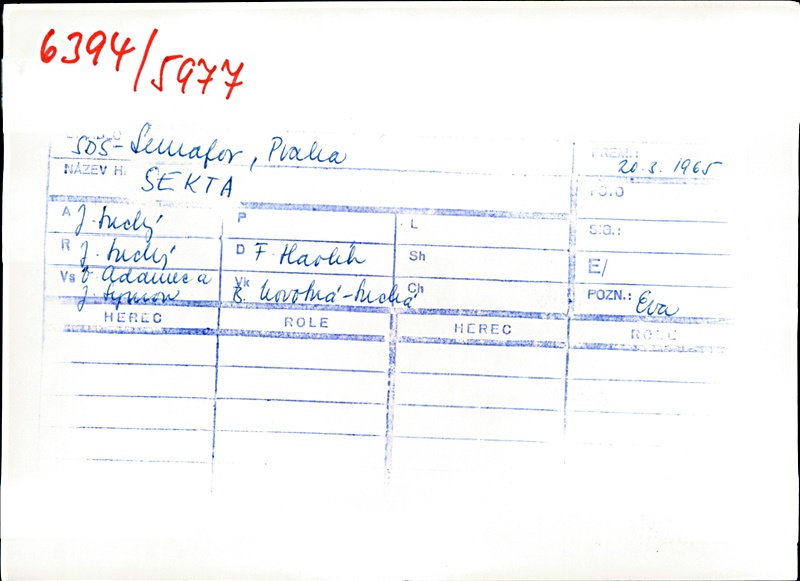 6394/5977
SDS-Semafor, Praha
PREM.: 20.3.1965
NÁZEV H. SEKTA
FOTO
A J. Suchý P L SIG.:
R J. Suchý D F. Havlík Sh E/
Vs Z. Adamec a Vk B. Novotná-Suchá Ch POZN.: Eva
J. Synek
HEREC ROLE HEREC ROLE